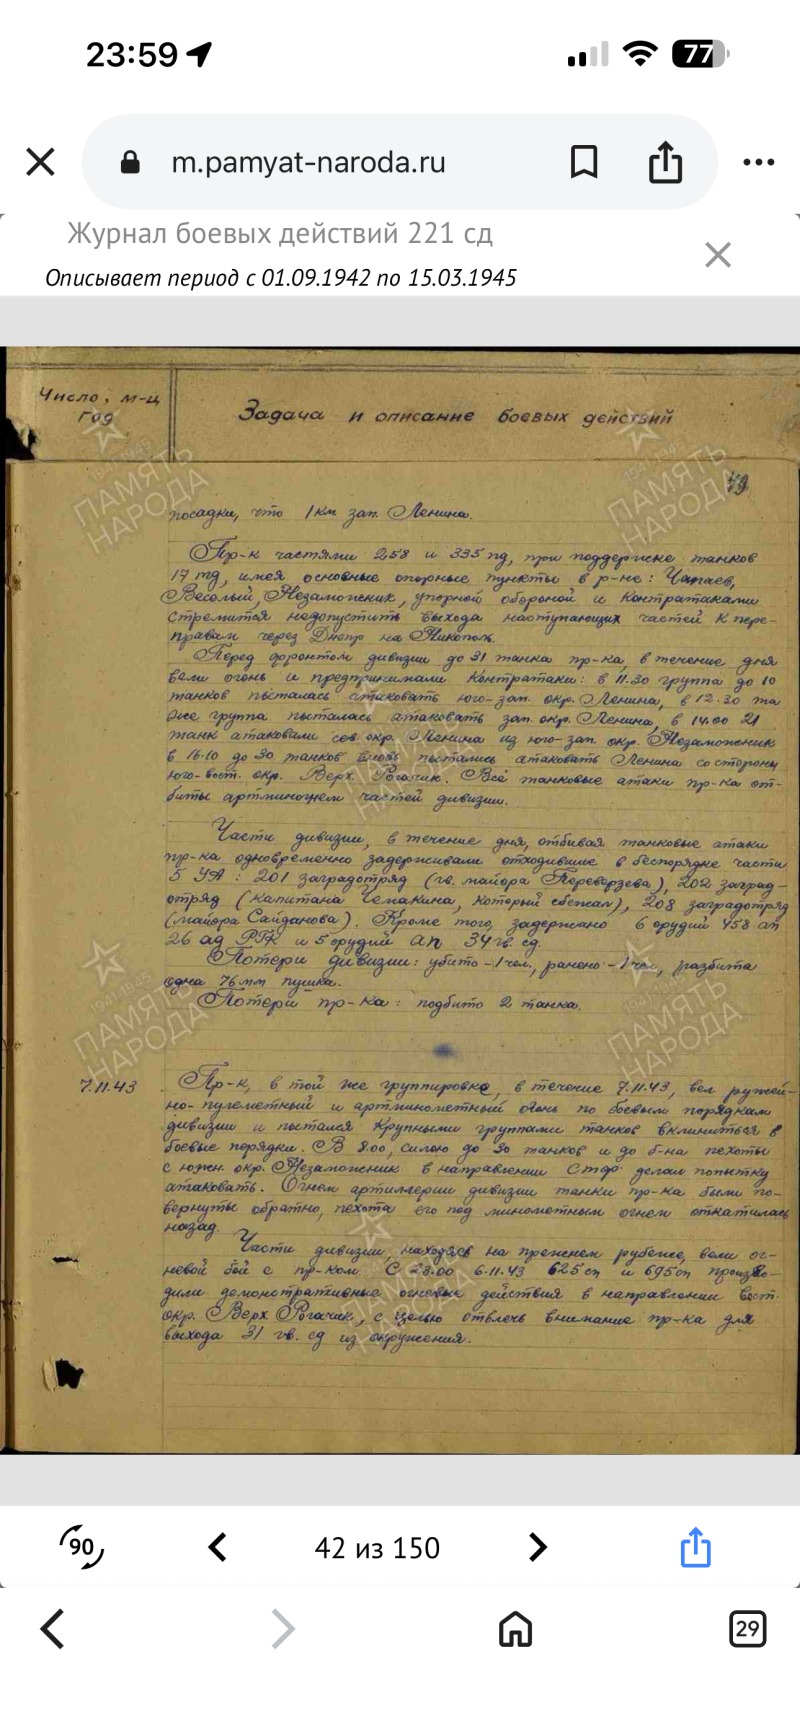 23:59
77
m.pamyat-naroda.ru
Журнал боевых действий 221 сд
Описывает период с 01.09.1942 по 15.03.1945
Число, м-ц
год
Задача и описание боевых действий
49
посадки, что 1 км зап. Ленина.
Пр-к частями 258 и 335 пд, при поддержке танков
17 тд, имея основные опорные пункты в р-не: Чапаев,
Весёлый, Незаможник, упорной обороной и контратаками
стремится недопустить выхода наступающих частей к пере-
правам через Днепр на Никополь.
Перед фронтом дивизии до 31 танка пр-ка, в течение дня
вели огонь и предпринимали контратаки: в 11.30 группа до 10
танков пыталась атаковать юго-зап. окр. Ленина, в 12.30 та
же группа пыталась атаковать зап. окр. Ленина, в 14.00 21
танк атаковали сев. окр. Ленина из юго-зап. окр. Незаможник
в 16.10 до 30 танков вновь пытались атаковать Ленина со стороны
юго-вост. окр. Верх. Рогачик. Все танковые атаки пр-ка от-
биты артминогнем частей дивизии.
Части дивизии, в течение дня, отбивая танковые атаки
пр-ка одновременно задерживали отходившие в беспорядке части
5 УА: 201 заградотряд (гв. майора Переверзева), 202 заград-
отряд (капитана Чемакина, который сбежал), 208 заградотряд
(майора Сайданова). Кроме того, задержано 6 орудий 458 ап
26 ад РГК и 5 орудий ап 34 гв. сд.
Потери дивизии: убито - 1 чел., ранено - 1 чел, разбита
одна 76 мм пушка.
Потери пр-ка: подбито 2 танка.
7.11.43
Пр-к, в той же группировке, в течение 7.11.43, вел ружей-
но-пулеметный и артминометный огонь по боевым порядкам
дивизии и пытался крупными группами танков вклиниться в
боевые порядки. В 8.00, силою до 30 танков и до б-на пехоты
с южн. окр. Незаможник в направлении СТФ делал попытку
атаковать. Огнем артиллерии дивизии танки пр-ка были по-
вернуты обратно, пехота его под минометным огнем откатилась
назад.
Части дивизии, находясь на прежнем рубеже, вели ог-
невой бой с пр-ком. С 23.00 6.11.43 625 сп и 695 сп произво-
дили демонстративные огневые действия в направлении вост.
окр. Верх Рогачик, с целью отвлечь внимание пр-ка для
выхода 31 гв. сд из окружения.
ПАМЯТЬ
НАРОДА
1941-1945
90
42 из 150
29